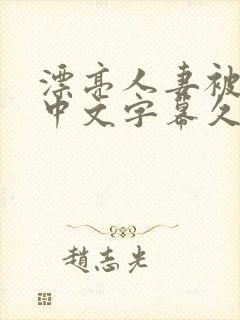 漂亮人妻被
中文字幕久
趙志光